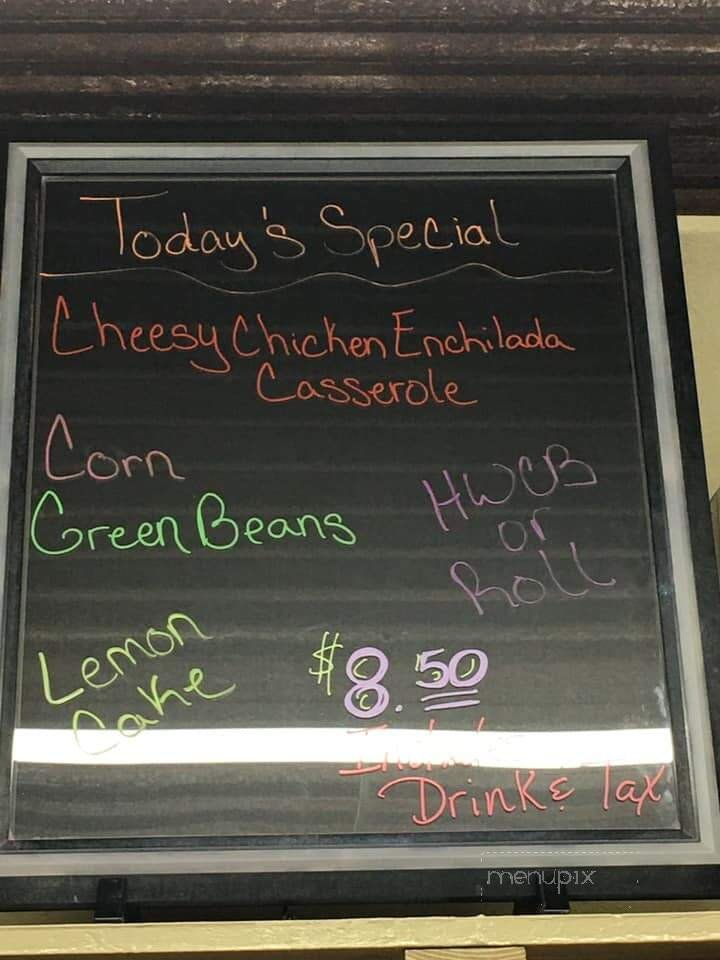 Today's Special
Cheesy Chicken Enchilada
Casserole
Corn
Green Beans
HWCB
or
Roll
Lemon
Cake
$8.50
Drink & Tax
menupix